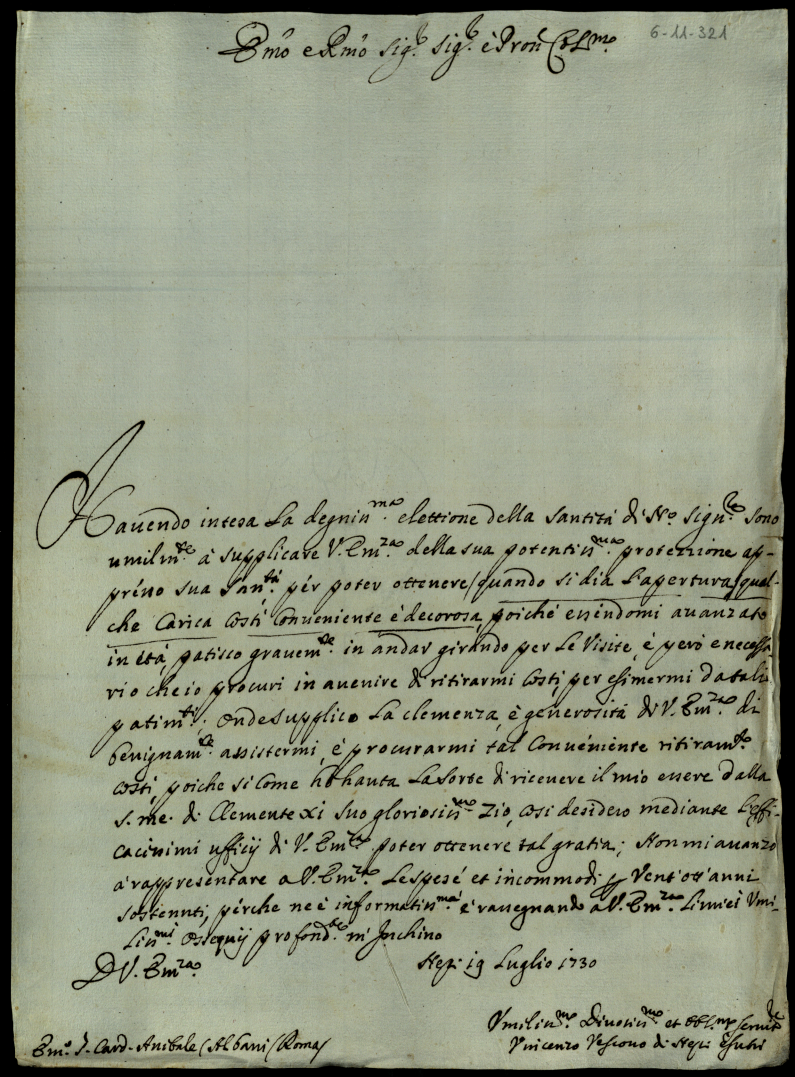 Em̃o e Rm̃o Sig.r Sig.r e Pron̄ Col.mo
6-11-321
Havendo intesa La degniss.ma elettione della Santità di N.ro Sign.re sono
umilm.te à supplicare V. Em.za della sua potentiss.ma protezzione ap-
presso sua San.tà per poter ottenere/quando si dia l'apertura/qual-
che Carica Costì Conveniente è decorosa, poiché essendomi avanzato
in età, patisco gravem.te in andar girando per Le Visite, è però è necessa-
rio che io procuri in avenire di ritirarmi Costì per esimermi da tali
patim.ti; Onde supplico La clemenza, è generosità di V. Em.za di
benignam.te assistermi, è procurarmi tal Conveniente ritiram.to
costì, poiche si come hò hauta La sorte di ricevere il mio essere dalla
S. me. di Clemente XI suo gloriosiss.mo Zio, così desidero mediante l'effi-
cacissimi ufficij di V. Em.za poter ottenere tal gratia; Non mi avanzo
à rappresentare a V. Em.za Le spese et incommodi p Vent'ott'anni
sostenuti, perche ne è informatiss.ma è rassegnando à V. Em.za Li miei Umi-
liss.mi Ossequij profond.te m'Inchino
D V. Em.za
Nepi 19 Luglio 1730
Umiliss.mo Divotiss.mo et obbl.mo serv.re
Vincenzo Vescovo di Nepi e Sutri
Em.o S. Card. Anibale (Albani (Roma/